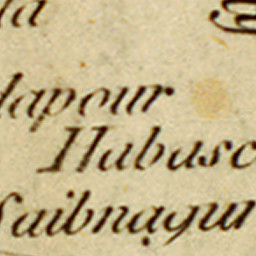 la
dapour
Habasc
Saibnagur